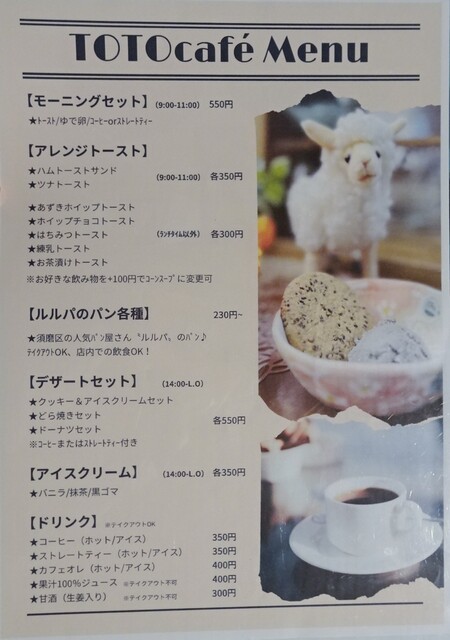 TOTOcafé Menu
【モーニングセット】(9:00-11:00) 550円
★ﾄｰｽﾄ/ゆで卵/ｺｰﾋｰorｽﾄﾚｰﾄﾃｨｰ
【アレンジトースト】
★ハムトーストサンド
★ツナトースト (9:00-11:00) 各350円
★あずきホイップトースト
★ホイップチョコトースト
★はちみつトースト (ﾗﾝﾁﾀｲﾑ以外) 各300円
★練乳トースト
★お茶漬けトースト
※お好きな飲み物を+100円でｺｰﾝｽｰﾌﾟに変更可
【ルルパのパン各種】 230円~
★須磨区の人気ﾊﾟﾝ屋さん〝ルルパ〟のパン♪
ﾃｲｸｱｳﾄOK、店内での飲食OK！
【デザートセット】 (14:00-L.O)
★クッキー＆アイスクリームセット
★どら焼きセット
★ドーナツセット 各550円
※ｺｰﾋｰまたはｽﾄﾚｰﾄﾃｨｰ付き
【アイスクリーム】 (14:00-L.O) 各350円
★バニラ/抹茶/黒ゴマ
【ドリンク】 ※テイクアウトOK
★コーヒー（ホット/アイス） 350円
★ストレートティー（ホット/アイス） 350円
★カフェオレ（ホット/アイス） 400円
★果汁100％ジュース ※テイクアウト不可 400円
★甘酒（生姜入り） ※テイクアウト不可 300円